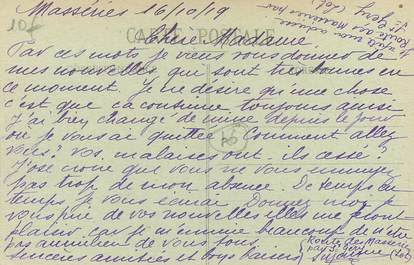 Masséries 16/10/19
CARTE POSTALE
Chère Madame
Par ces mots je viens vous donner de
mes nouvelles, qui sont très bonnes en
ce moment. Je ne désire qu'une chose
c'est que ça continue toujours ainsi
J'ai bien changé de mine depuis le jour
où je vous ai quittée. Comment allez
vous? Vos malaises ont-ils cessé?
J'ose croire que vous ne vous ennuyez
pas trop de mon absence. De temps en
temps je vous écrirai Donnez moi je
vous prie de vos nouvelles elles me feront
plaisir car je m'ennuie beaucoup de n'être
pas au milieu de vous tous
Sincères amitiés et bons baisers
Route des Masseries
St Géry
(Lot)
Je
mon adresse
Route des Masseries par
St Géry (Lot)
10f